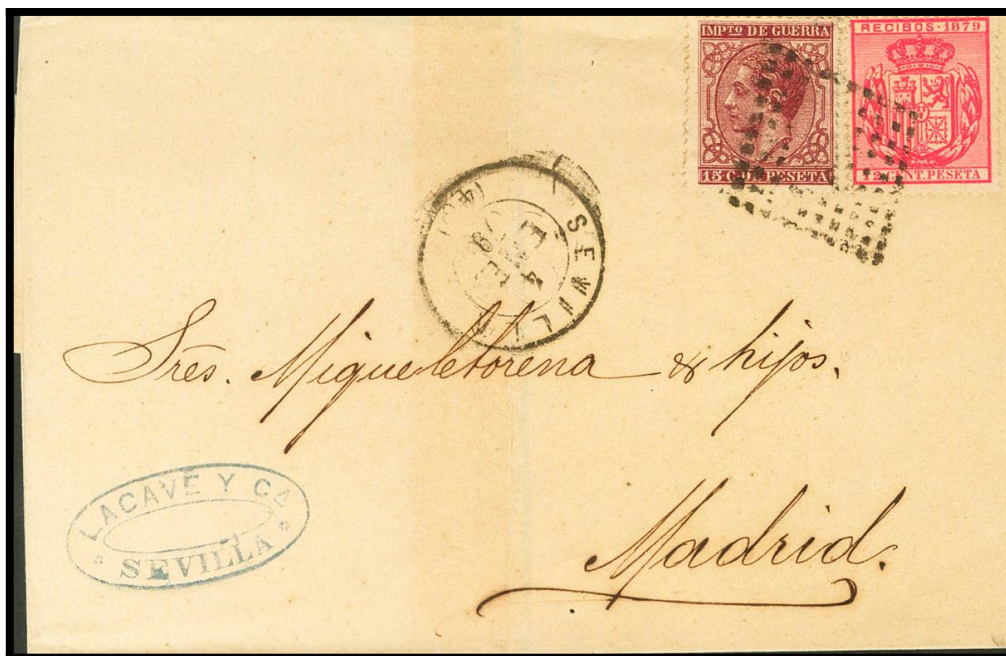 IMPTO DE GUERRA
15 C. DE PESETA
RECIBOS-1879
12 CENT. PESETA
SEVILLA
4
ENE
79
Sres. Migueletorena & hijos.
LACAVE Y CA
SEVILLA
Madrid.